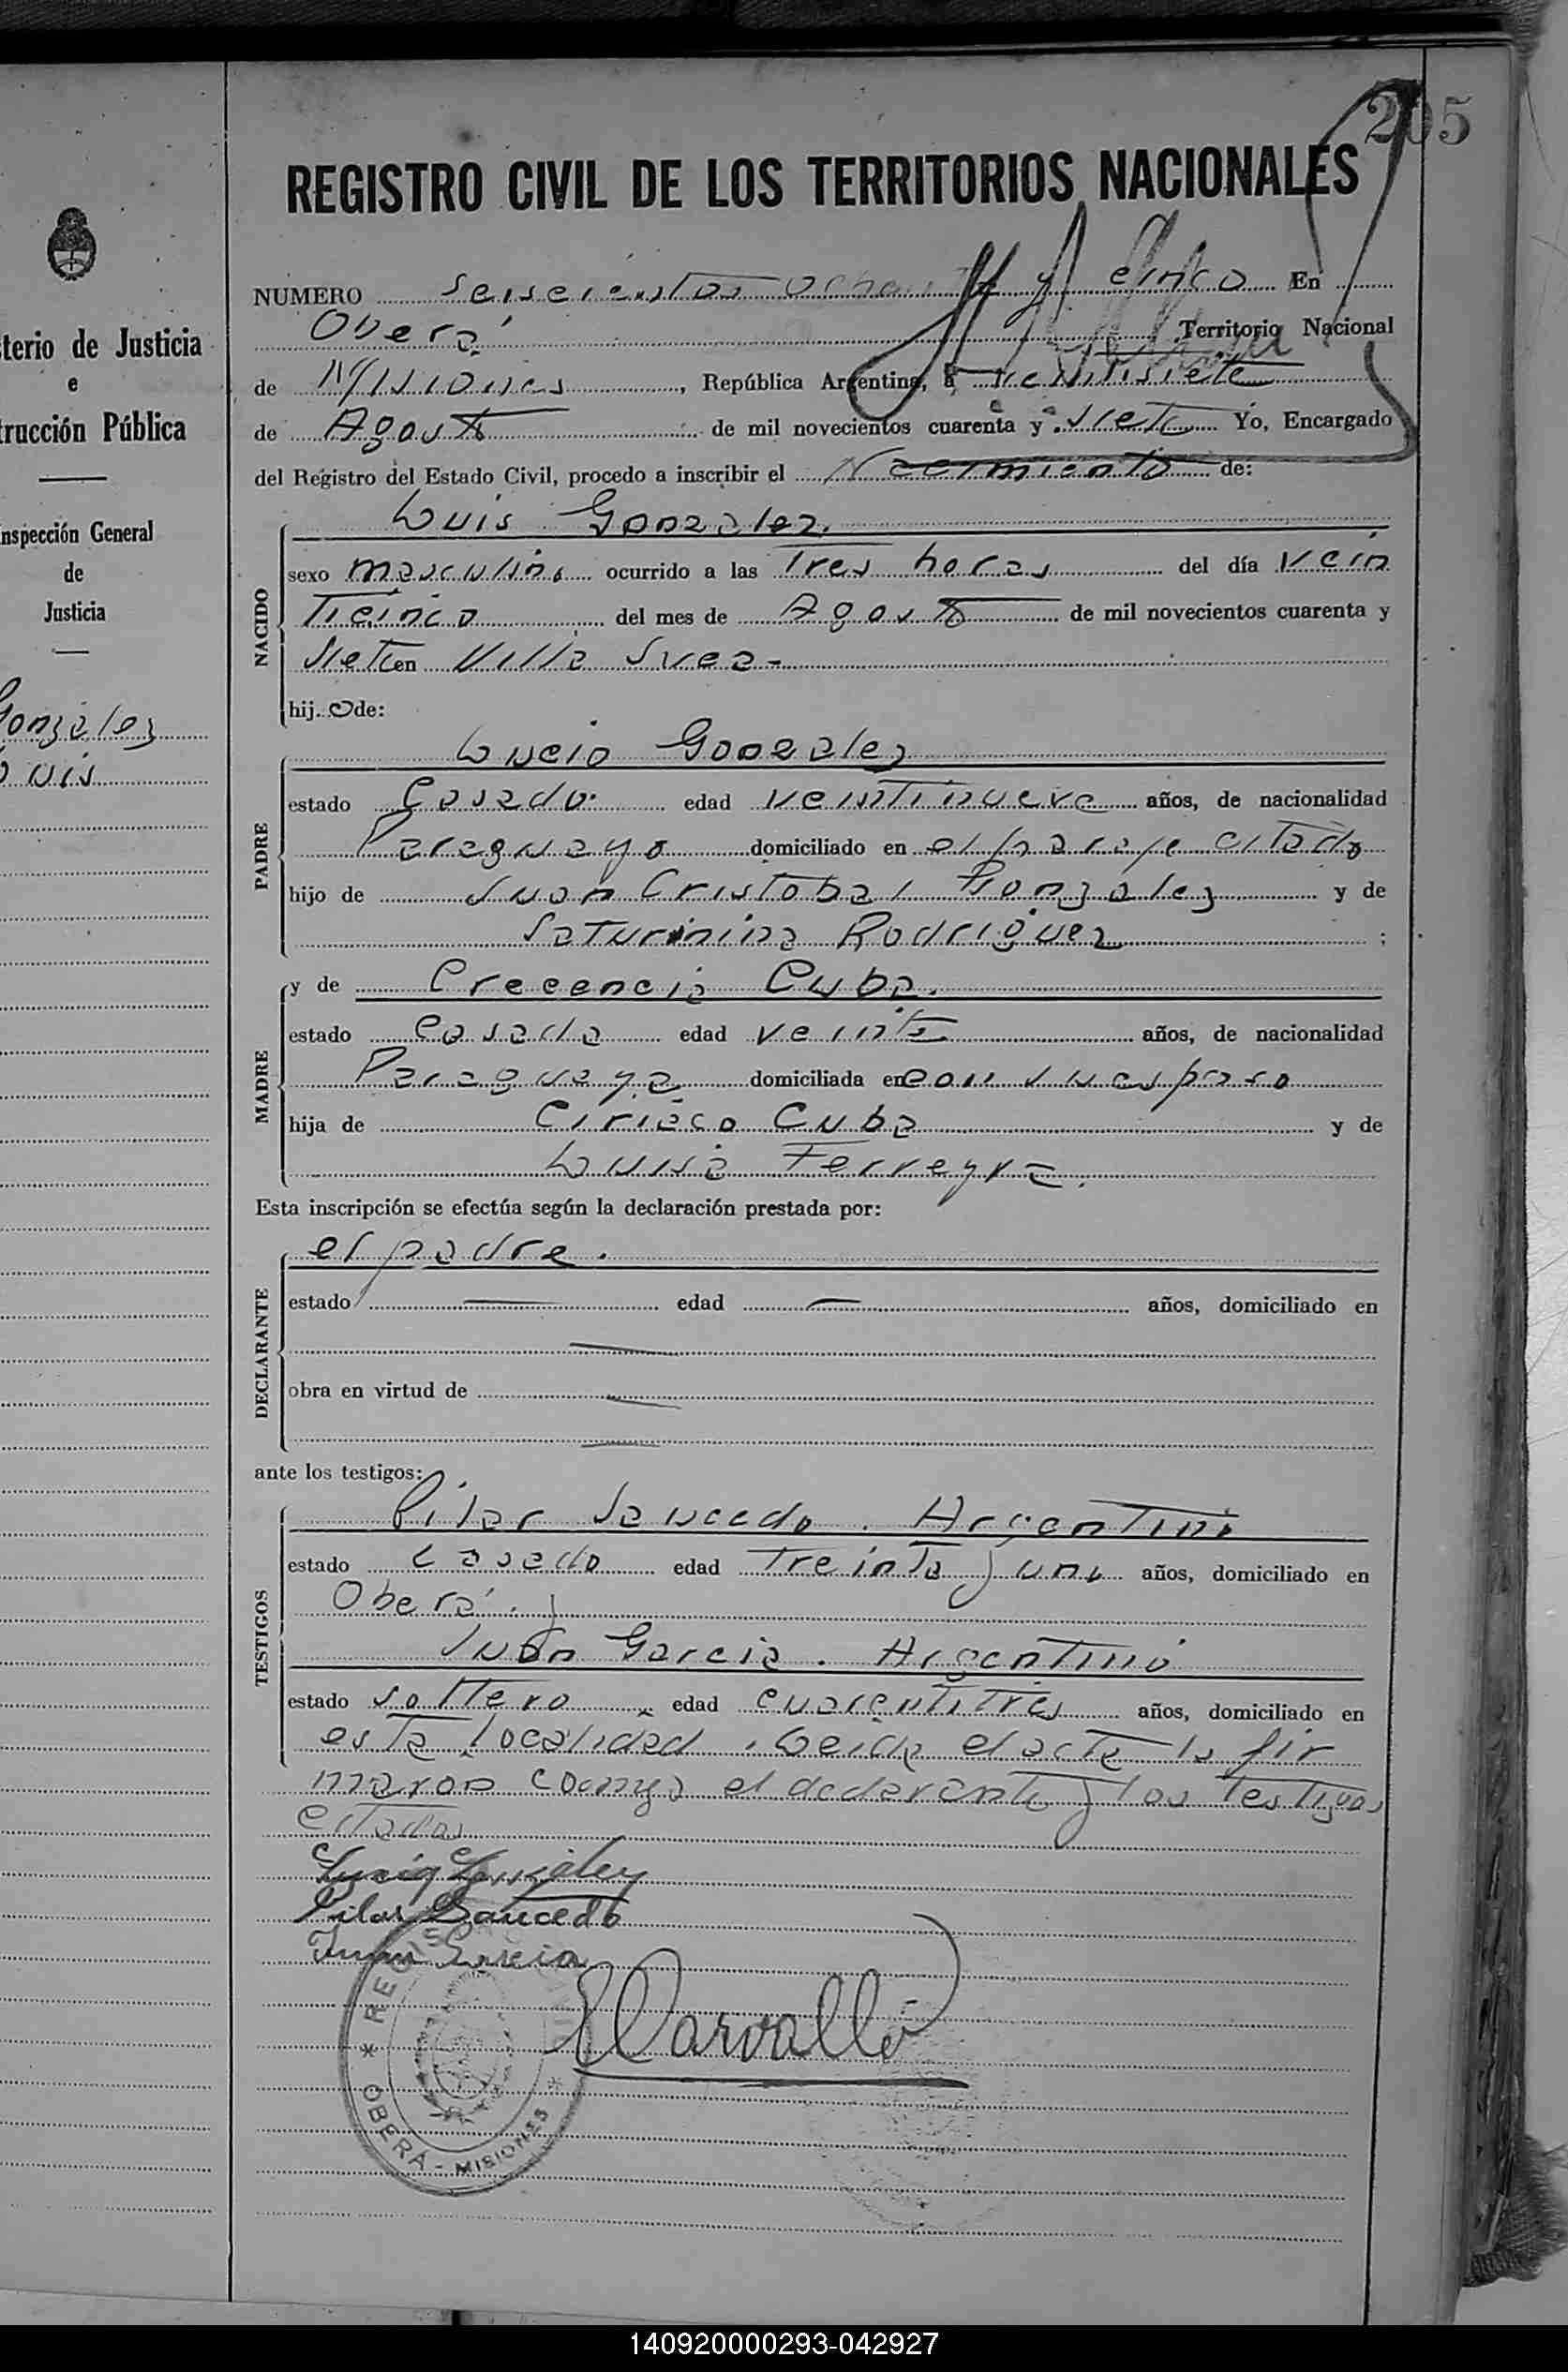 205
REGISTRO CIVIL DE LOS TERRITORIOS NACIONALES
NUMERO seiscientos ochenta y cinco En
Oberá Territorio Nacional
de Misiones, República Argentina, a veintisiete
de Agosto de mil novecientos cuarenta y siete Yo, Encargado
del Registro del Estado Civil, procedo a inscribir el Nacimiento de:
NACIDO
Luis Gonzalez.
sexo masculino ocurrido a las Tres horas del día vein
ticinco del mes de Agosto de mil novecientos cuarenta y
siete en Villa Svea-
hij o de:
PADRE
Lucio Gonzalez
estado Casado. edad veintinueve años, de nacionalidad
Paraguayo domiciliado en el paraje citado
hijo de Juan Cristobal Gonzalez y de
Saturnina Rodriguez ;
MADRE
y de Crecencia Cuba.
estado casada edad veinte años, de nacionalidad
Paraguaya domiciliada en con su esposo
hija de Ciriaco Cuba y de
Luisa Ferreyra.
Esta inscripción se efectúa según la declaración prestada por:
DECLARANTE
el padre.
estado — edad — años, domiciliado en
—
obra en virtud de —
—
ante los testigos:
TESTIGOS
Pilar Saucedo. Argentino
estado casado edad treinta y uno años, domiciliado en
Oberá. y
Juan Garcia. Argentino
estado soltero edad cuarentitres años, domiciliado en
esta localidad. Leida el acta la fir
maron conmigo el declarante y los testigos
citados
Lucio Gonzalez
Pilar Saucedo
Juan Garcia
Carvallo
REGISTRO CIVIL
* OBERÁ - MISIONES *
sterio de Justicia
e
trucción Pública
nspección General
de
Justicia
Gonzalez
Luis
140920000293-042927